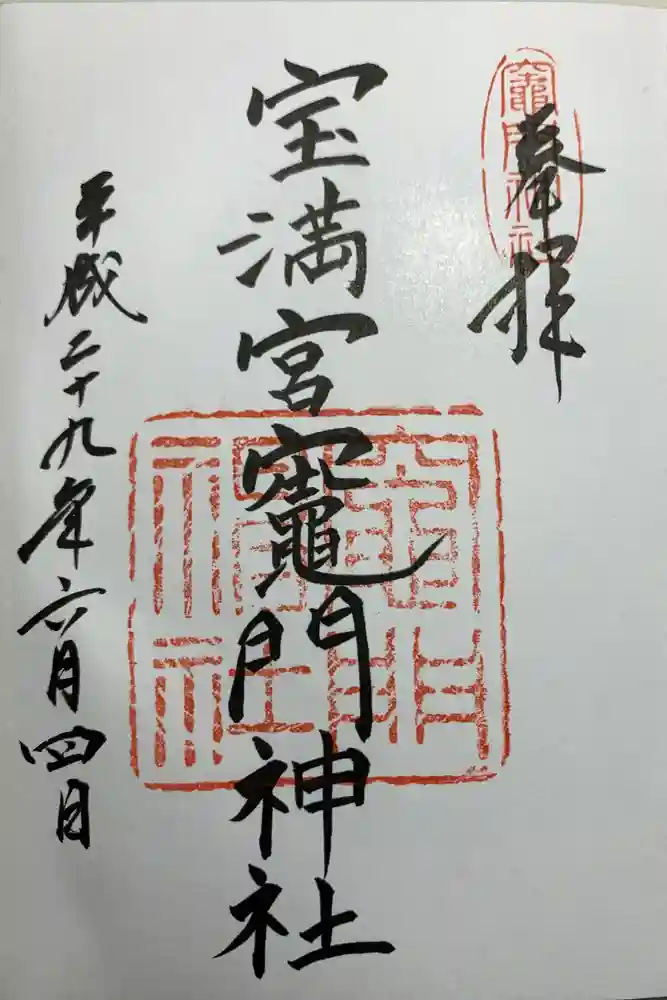 奉拝
竈門神社
宝満宮竈門神社
平成二十九年六月四日